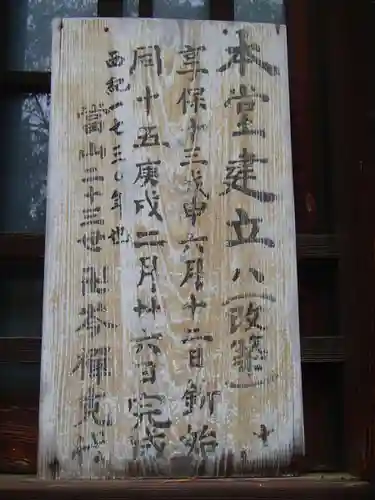 本堂建立八(改築)
享保十三戊申六月十二日釿始
同十五庚戌二月廿六日完成
西紀一七三〇年也
當山二十三世卍本禅